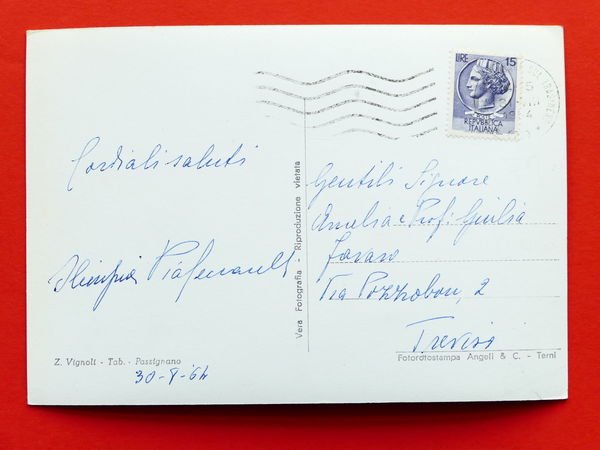 LIRE 15
POSTE
REPVBBLICA
ITALIANA
Cordiali saluti
Olimpia
Vera Fotografia - Riproduzione vietata
Gentili Signore
Amelia e Prof. Giulia
Favaro
Via Pozzobon, 2
Treviso
Z. Vignoli - Tab. - Passignano
30-8-64
Fotorotostampa Angeli & C. - Terni